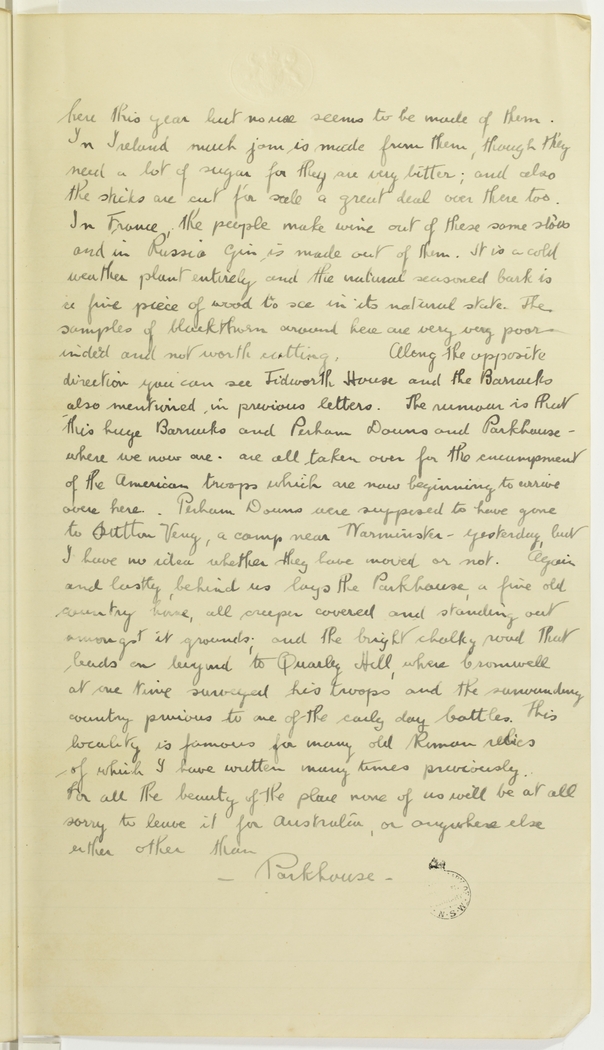 here this year but no use seems to be made of them.
In Ireland much jam is made from them, though they
need a lot of sugar for they are very bitter; and also
the sticks are cut for sale a great deal over there too.
In France, the people make wine out of these same sloes
and in Russia Gin is made out of them. It is a cold
weather plant entirely and the natural seasoned bark is
a fine piece of wood to see in its natural state. The
samples of blackthorn around here are very very poor
indeed and not worth cutting. Along the opposite
direction you can see Tidworth House and the Barracks
also mentioned in previous letters. The rumour is that
this huge Barracks and Perham Downs and Parkhouse -
where we now are. are all taken over for the encampment
of the American troops which are now beginning to arrive
over here. Perham Downs were supposed to have gone
to Sutton Veny, a camp near Warminster - yesterday, but
I have no idea whether they have moved or not. Again
and lastly, behind us lays the Parkhouse, a fine old
country home, all creeper covered and standing out
amongst it grounds; and the bright chalky road that
leads on beyond to Quarley Hill, where Cromwell
at one time surveyed his troops and the surrounding
country previous to one of the early day battles. This
locality is famous for many old Roman relics
of which I have written many times previously.
For all the beauty of the place none of us will be at all
sorry to leave it for Australia, or anywhere else
either other than
- Parkhouse -
N.S.W.